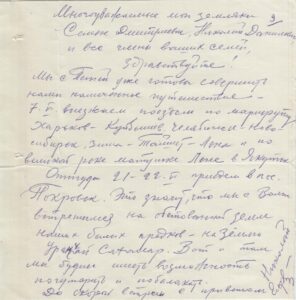 Многоуважаемые мои земляки
Семен Дмитриевич, Николай
и все члены ваших семей,
Здравствуйте!
Мы с Таней уже готовы совершить
наше намеченное путешествие –
7 VI выезжаем поездом по маршруту
Харьков – Куйбышев Челябинск Ново-
сибирск, Зима – Тайшет – Лена и по
великой реке матушке Лене в Якутск.
Оттуда 21–22 VI приедем в пос.
Покровск. Это значит, что мы с Вами
встретимся на земле
наших предков – на земле
Саха. Вот и там
мы будем иметь возможность
поговорить и повспоминать.
До скорой встречи с приветом
Николай